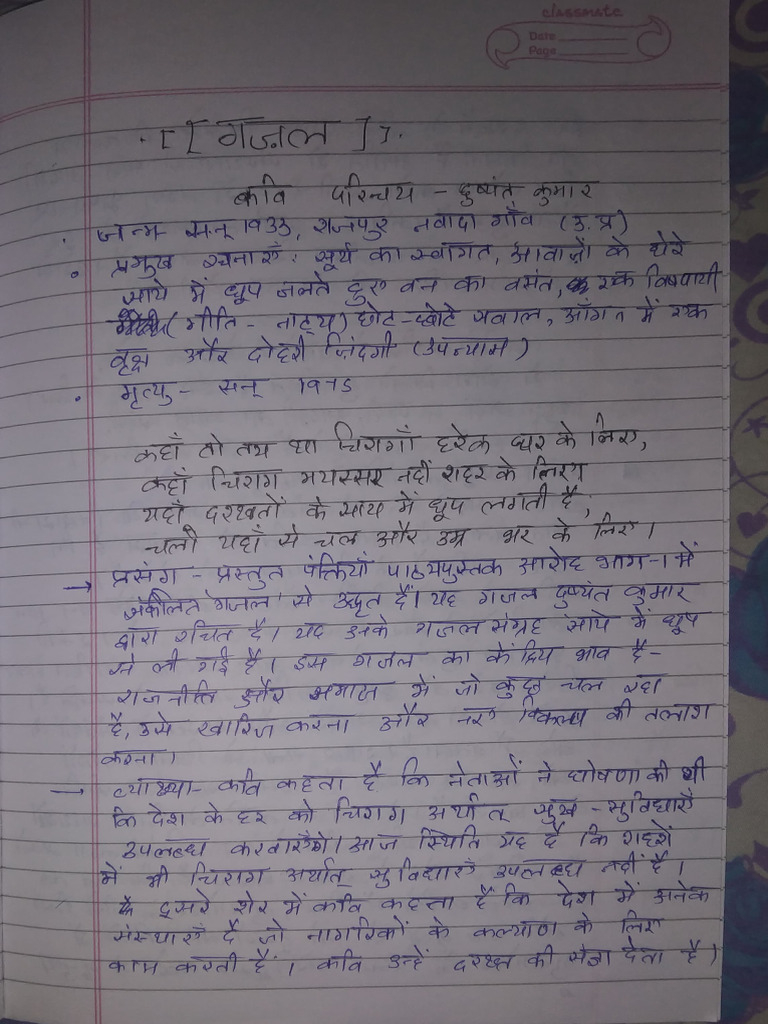 classmate
Date
Page
[[ गज़ल ]]
कवि परिचय - दुष्यंत कुमार
जन्म - सन् 1933, राजपुर नवादा गाँव (उ.प्र)
प्रमुख रचनाएँ : सूर्य का स्वागत, आवाज़ों के घेरे
साये में धूप जलते हुए वन का वसंत, एक विषपायी
(गीति - नाट्य) छोटे-छोटे सवाल, आँगन में एक
वृक्ष और दोहरी ज़िंदगी (उपन्यास)
मृत्यु - सन् 1975
कहाँ तो तय था चिरागाँ हरेक घर के लिए,
कहाँ चिराग मयस्सर नहीं शहर के लिए।
यहाँ दरख्तों के साय में धूप लगती है,
चलो यहाँ से चल और उम्र भर के लिए।
→ प्रसंग - प्रस्तुत पंक्तियाँ पाठ्यपुस्तक आरोह भाग-1 में
संकलित 'गजल' से उद्धृत हैं। यह गजल दुष्यंत कुमार
द्वारा रचित है। यह उनके गजल संग्रह साये में धूप
से ली गई है। इस गजल का केंद्रिय भाव है-
राजनीति और समाज में जो कुछ चल रहा
है, उसे खारिज करना और नए विकल्प की तलाश
करना।
→ व्याख्या - कवि कहता है कि नेताओं ने घोषणा की थी
कि देश के हर को चिराग अर्थात् सुख - सुविधाएँ
उपलब्ध करवाएँगे। आज स्थिति यह है कि शहरों
में भी चिराग अर्थात् सुविधाएँ उपलब्ध नहीं है।
दूसरे शेर में कवि कहता है कि देश में अनेक
संस्थाएँ है जो नागरिकों के कल्याण के लिए
काम करती हैं। कवि उन्हें दरख्त की संज्ञा देता है।